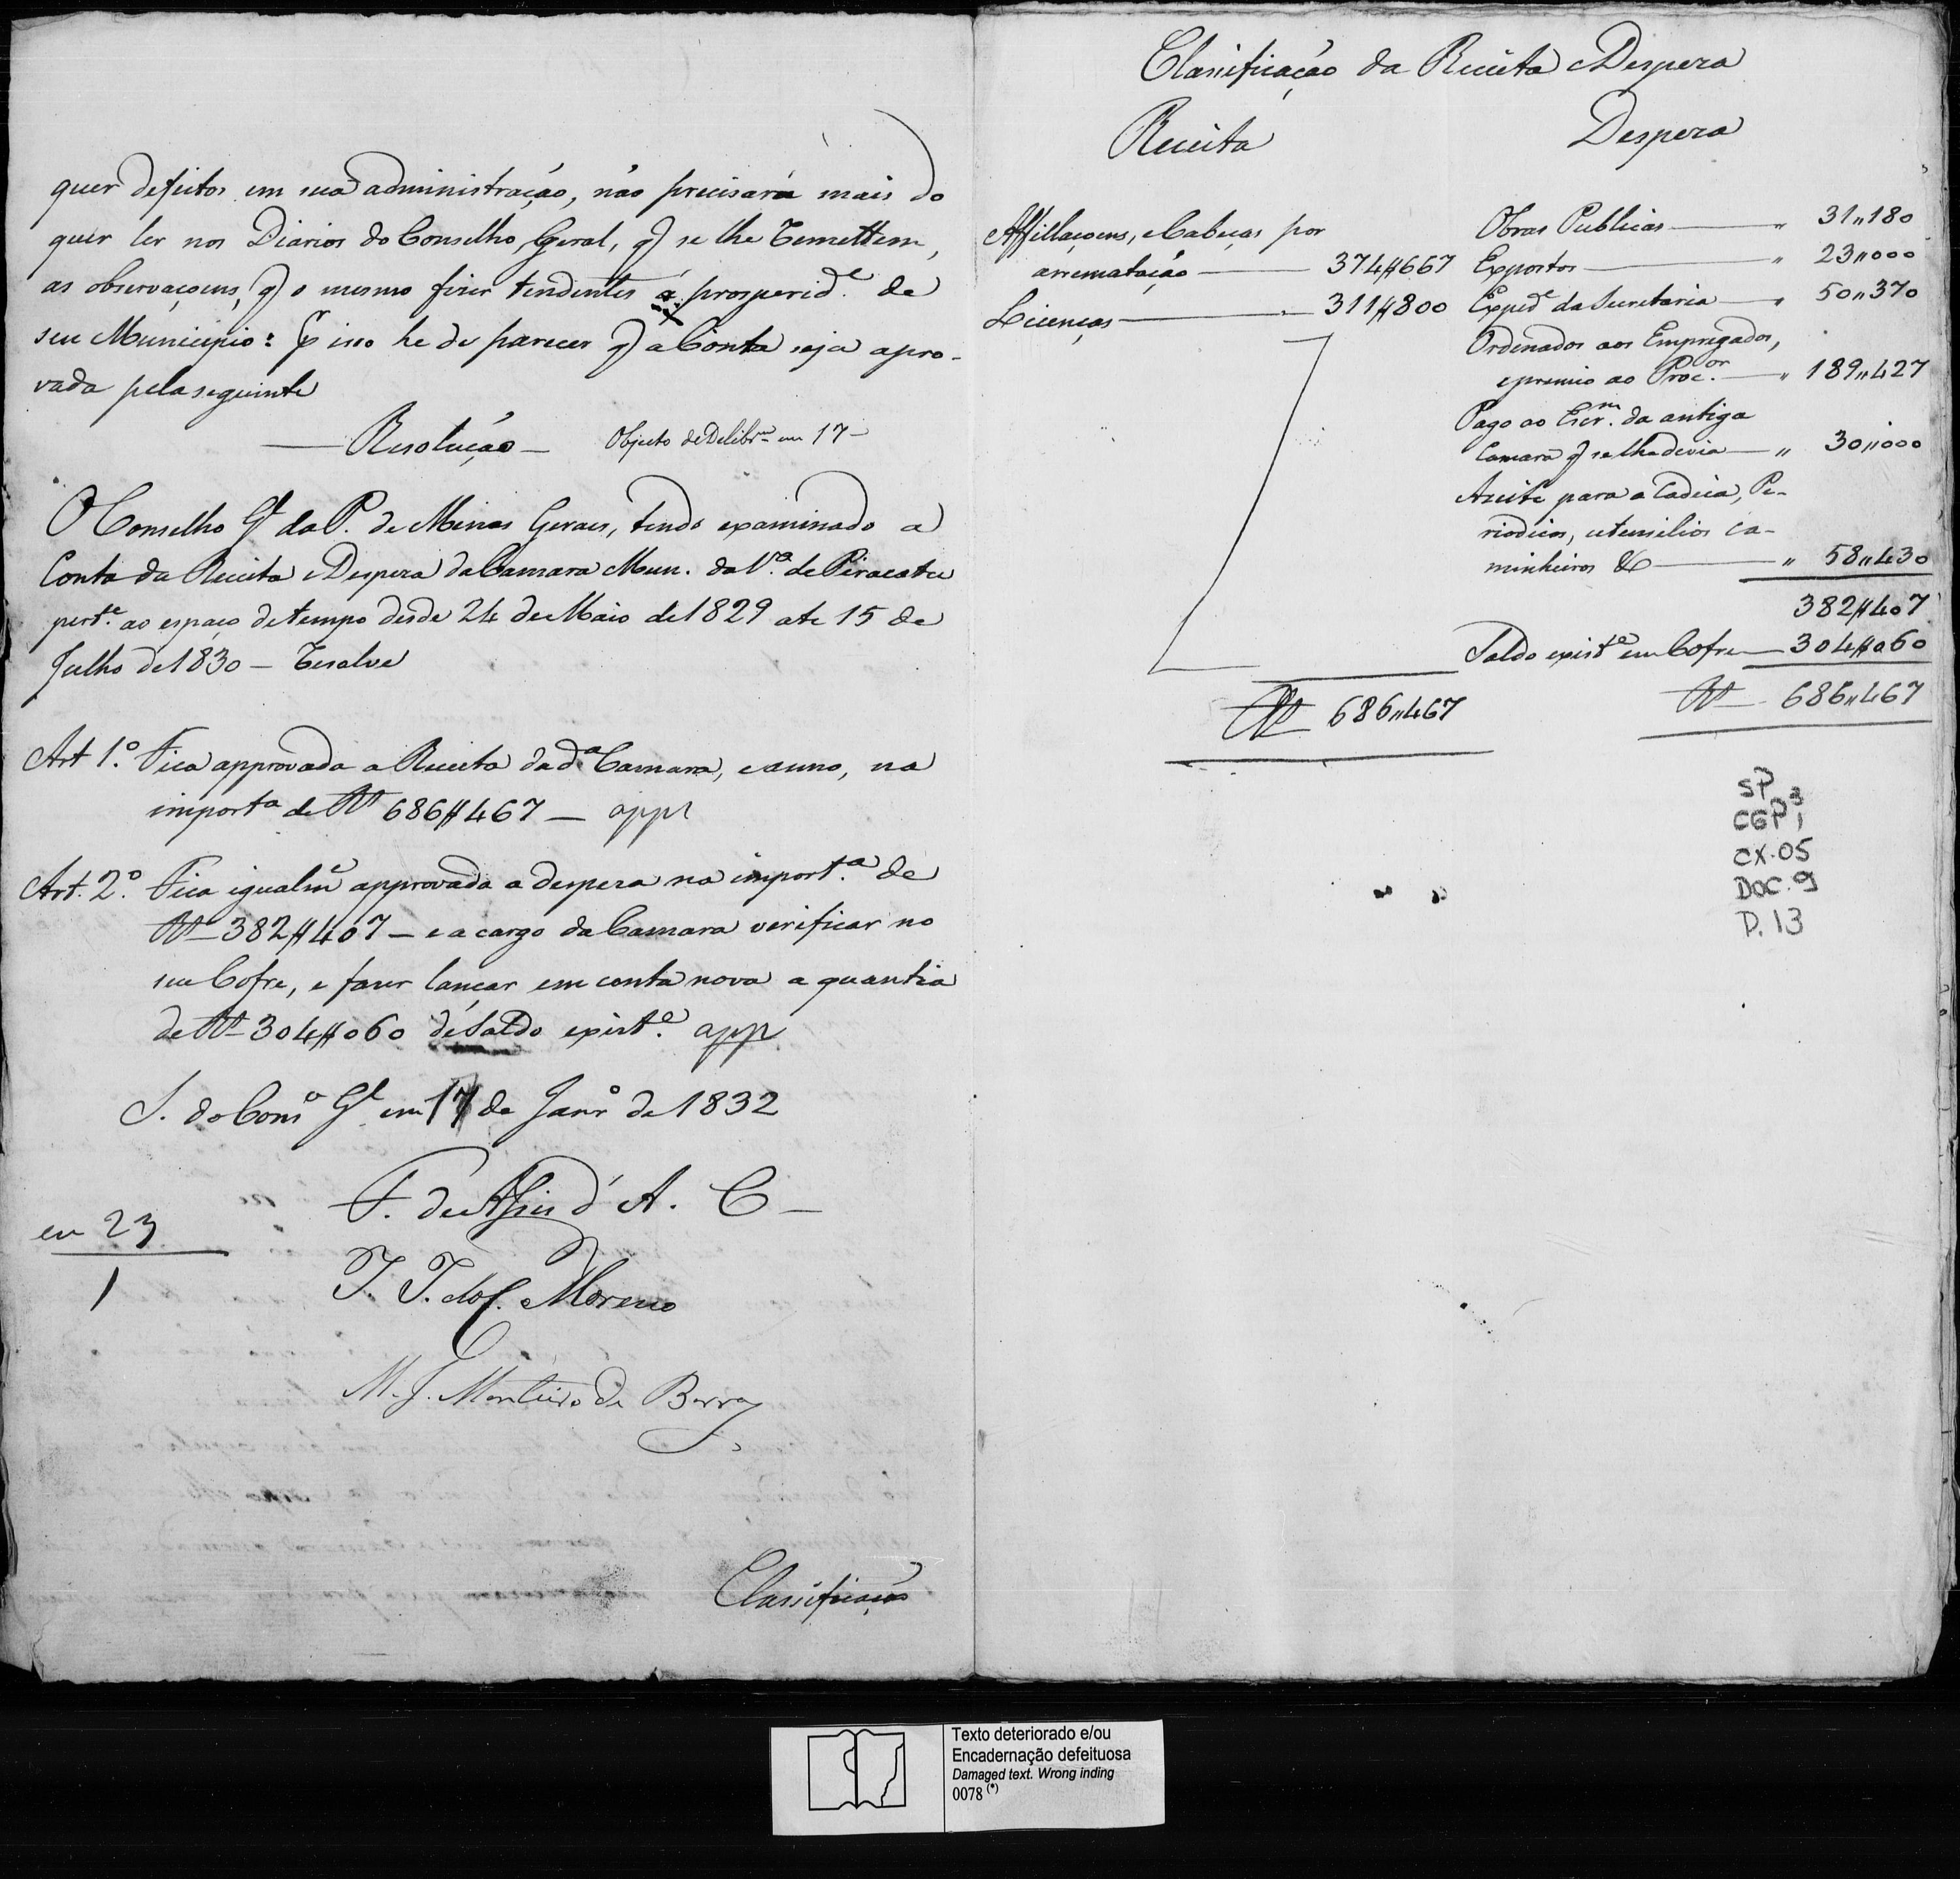 quer defeitos em sua administração, não precisará mais do
quer ler nos Diarios do Conselho Geral, q̃ se lhe remettem,
as observaçoens, q̃ o mesmo fizer tendentes á prosperid.e de
seu Municipio: P isso he de parecer q̃ a Conta seja apro-
vada pela seguinte
— Resolução — Objecto de Delibr.am em 17 —
O Conselho G.l da P. de Minas Geraes, tendo examinado a
Conta da Receita e Despeza da Camara Mun. da V.a de Piracatu
pert.e ao espaço de tempo desde 24 de Maio de 1829 ate 15 de
Julho de 1830 — resolve
Art 1.º Fica approvada a Receita da d.a Camara, e anno, na
import.a de R.s 686$467 — app
Art. 2.º Fica igualm.e approvada a despeza na import.a de
R.s 382$407 — e a cargo da Camara verificar no
seu Cofre, e fazer lançar em conta nova a quantia
de R.s 304$060 de Saldo exist.e app
S. do Cons.o G.l em 17 de Janr.o de 1832
F. de Assis d'A. C —
em 23
1
J. J. do C. Moreno
M. J. Monteiro de Barros
Classificação
Classificação da Receita e Despeza
Receita
Affillaçoens, e Cabeças por
arrematação — 374$667
Licenças — 311$800
R.s 686"467
Despeza
Obras Publicas — " 31"180
Expostos — " 23"000
Exped.e da Secretaria — " 50"370
Ordenados aos Empregados,
e premio ao Proc.or — " 189"427
Pago ao Escr.m da antiga
Camara q̃ se lhe devia — " 30"000
Azeite para a Cadeia, Pe-
riodicos, utensilios ca-
minheiros &c — " 58"430
382$407
Saldo exist.e em Cofre — 304$060
R.s — 686"467
SP
CGP 3
1
CX.05
DOC.9
P.13
Texto deteriorado e/ou
Encadernação defeituosa
Damaged text. Wrong inding
0078 (*)